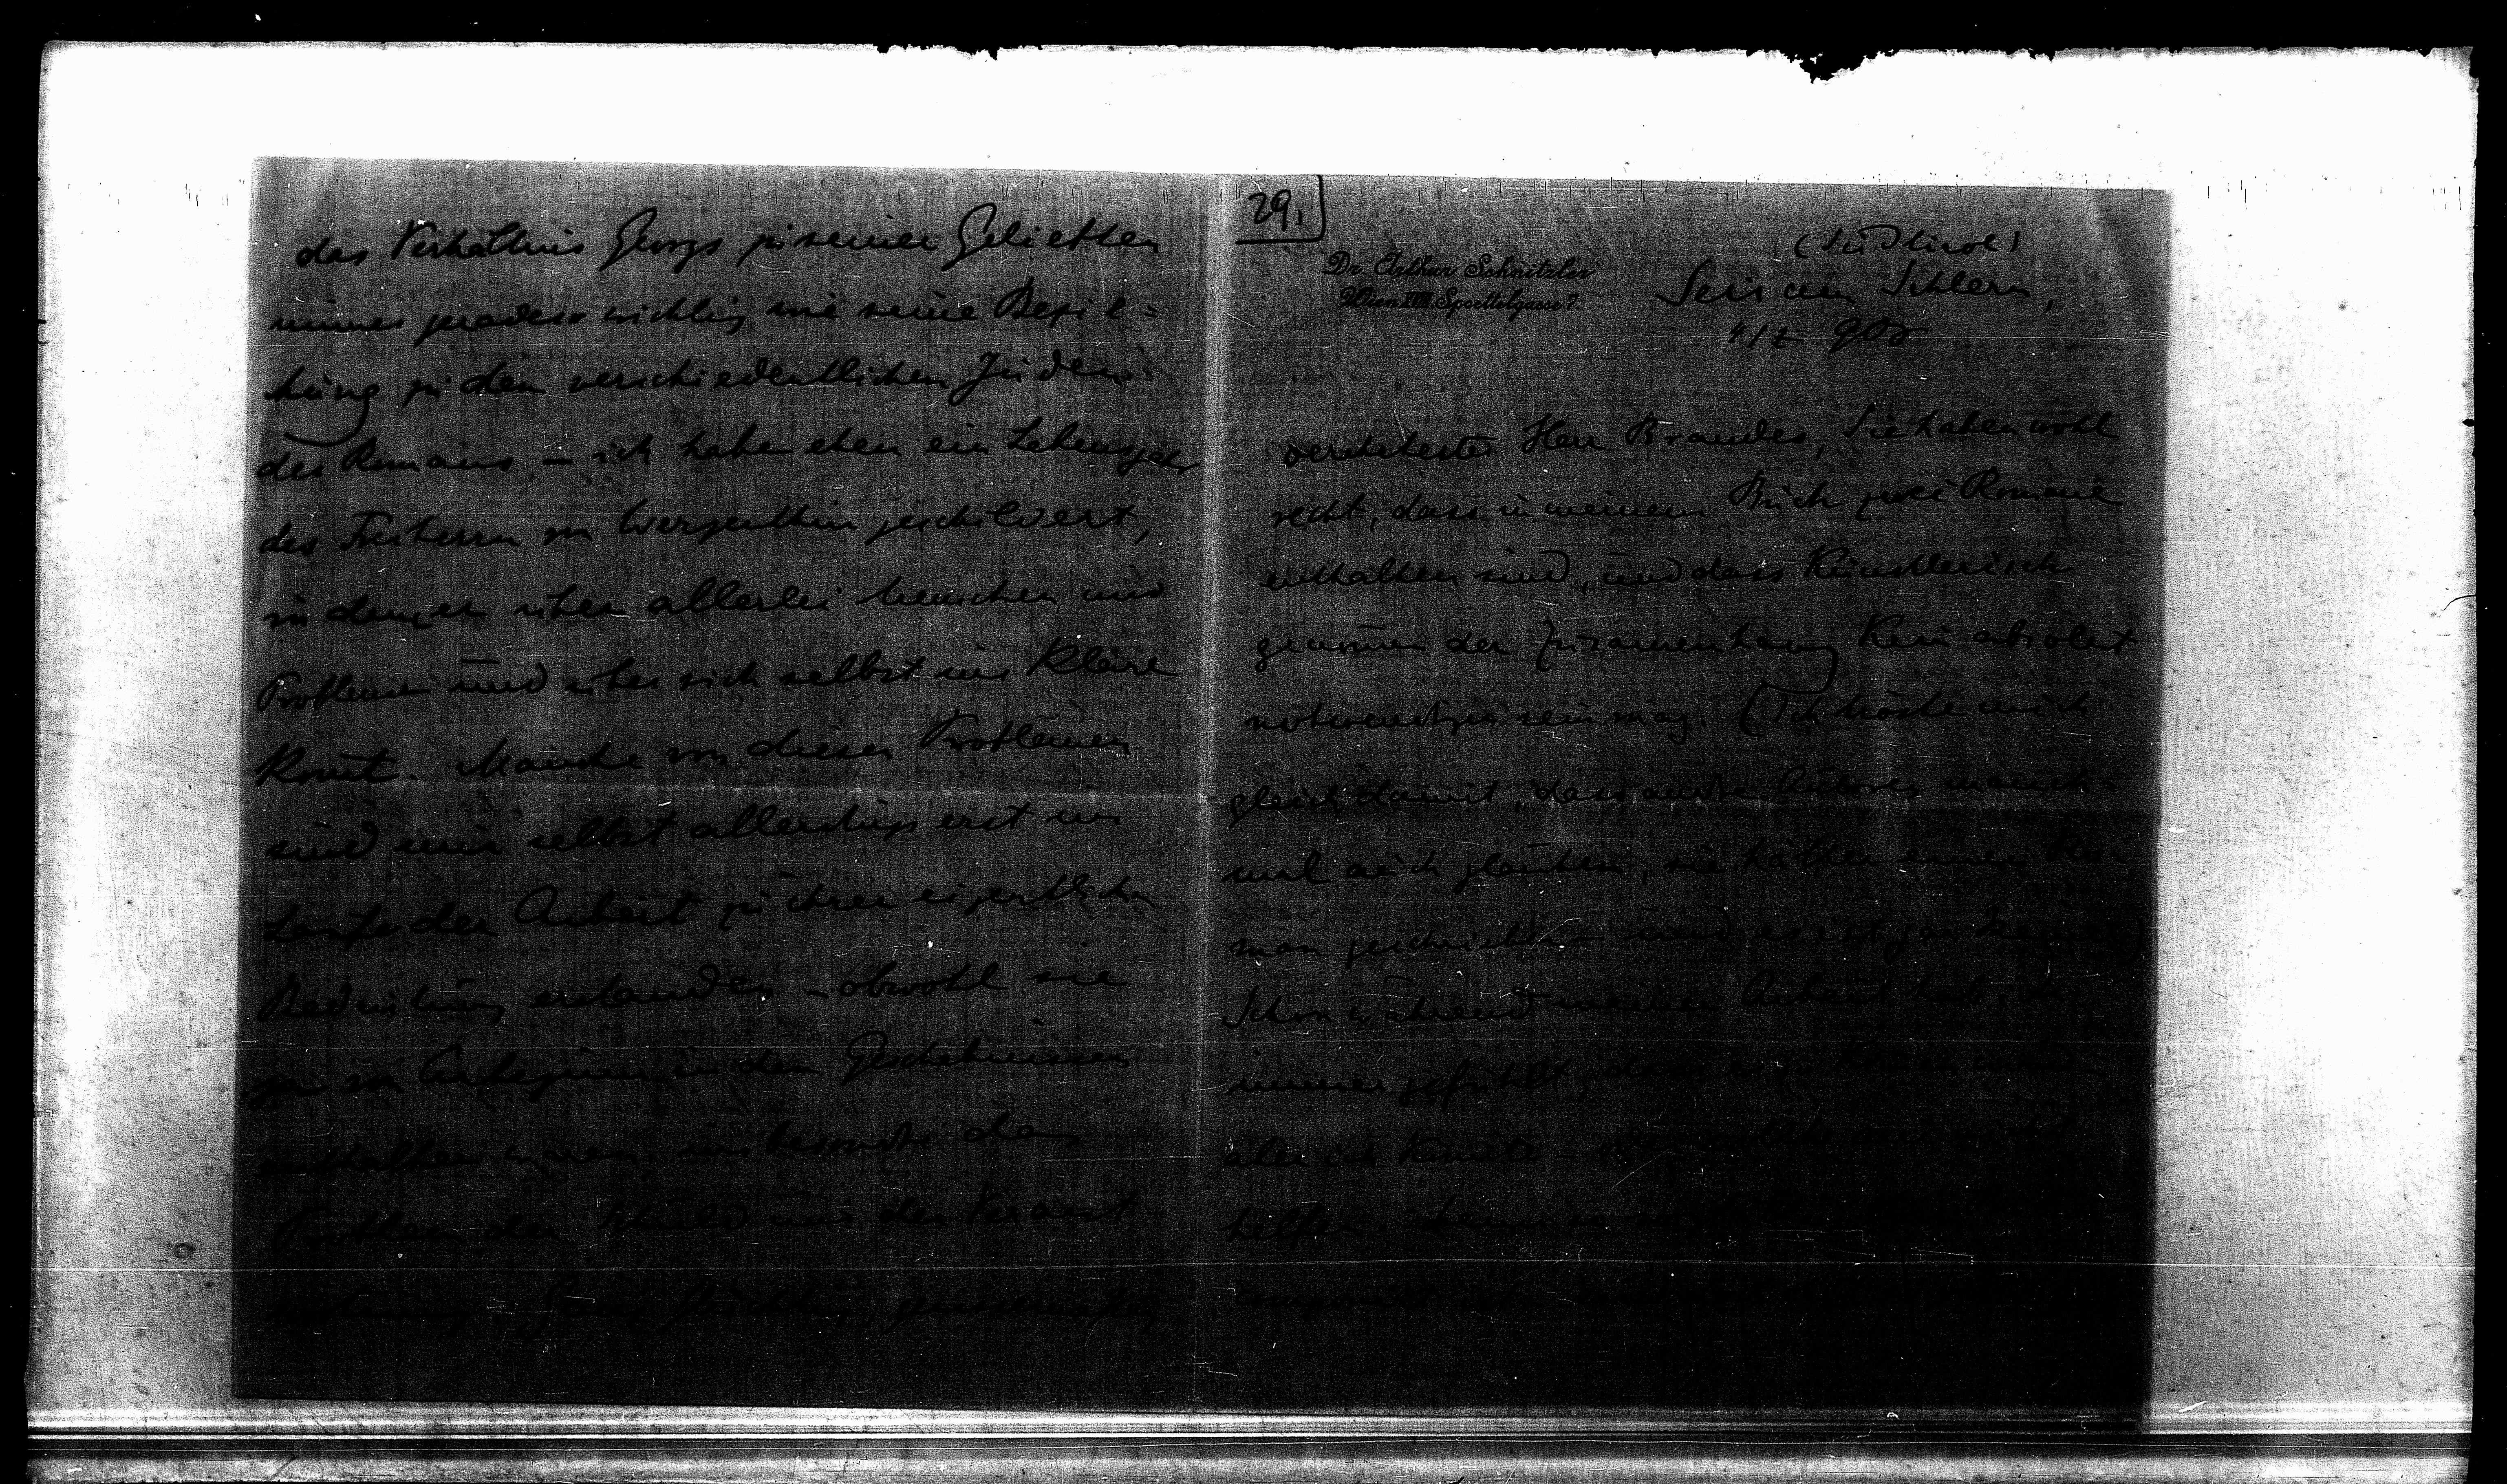 29.
Dr. Arthur Schnitzler
Wien XVIII. Spoettelgasse 7.
(Südtirol)
Seis am Schlern,
4/7 908
verehrtester Herr Brandes, Sie haben wohl
recht, dass in meinem Buch zwei Romane
enthalten sind, und dass künstlerisch
genommen der Zusammenhang kein absolut
notwendiger sein mag. (Ich tröste mich
gleich damit, dass andre Autoren manch-
mal auch glauben, sie hätten einen Ro-
man geschrieben – und es ist gar keiner)
Schon während meiner Arbeit hab ich
immer gefühlt, dass es
aber ich konnte mir nicht
helfen.
das Verhältnis Georgs zu seiner Geliebten
immer geradeso wichtig wie seine Bezie=
hung zu den verschiedentlichen Juden
des Romans – ich habe eben ein Lebensjahr
des Freiherrn von Wergenthin geschildert,
in dem er über allerlei Menschen und
Probleme und über sich selbst ins Klare
komt. Manche von diesen Problemen
sind mir selbst allerdings erst im
Laufe der Arbeit zu ihrer eigentlichen
Bedeutung erstanden – obwohl sie
ja von Anbeginn in den Geschehnissen
enthalten waren, insbesondre das
Problem der Schuld und der Verant
wortung